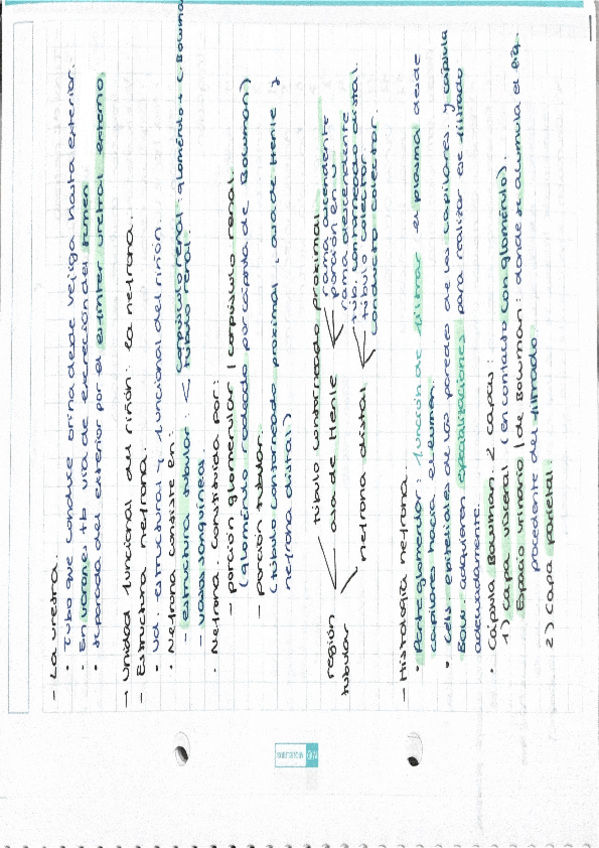 - La uretra.
• Tubo que conduce orina desde vejiga hasta exterior.
• En varones tb vía de excreción del semen
• separada del exterior por el esfínter uretral externo,
→ Unidad funcional del riñón: la nefrona.
- Estructura nefrona.
• Ud. estructural y funcional del riñón.
• Nefrona consiste en:
- estructura tubular: < corpúsculo renal: glomérulo + C. Bowman
túbulo renal.
- vasos sanguíneos
• Nefrona. Constituida por:
- porción glomerular / corpúsculo renal.
(glomérulo rodeado por cápsula de Bowman)
- porción tubular.
(túbulo contorneado proximal, asa de Henle y
nefrona distal)
región tubular
túbulo contorneado proximal
asa de Henle
rama ascendente
porción en U
rama descendente
nefrona distal
túb. contorneado distal.
túbulo colector
conducto colector.
- Histología nefrona.
• Parte glomerular: función de filtrar el plasma desde
capilares hacia el lumen.
• Céls epiteliales de las paredes de los capilares y cápsula
Bow. adquieren especializaciones para realizar ese filtrado
adecuadamente.
• Cápsula Bowman. 2 capas:
1) capa visceral (en contacto con glomérulo).
Espacio urinario / de Bowman: donde se alumula el líq.
procedente del filtrado.
2) Capa parietal.
MIQUELRIUS